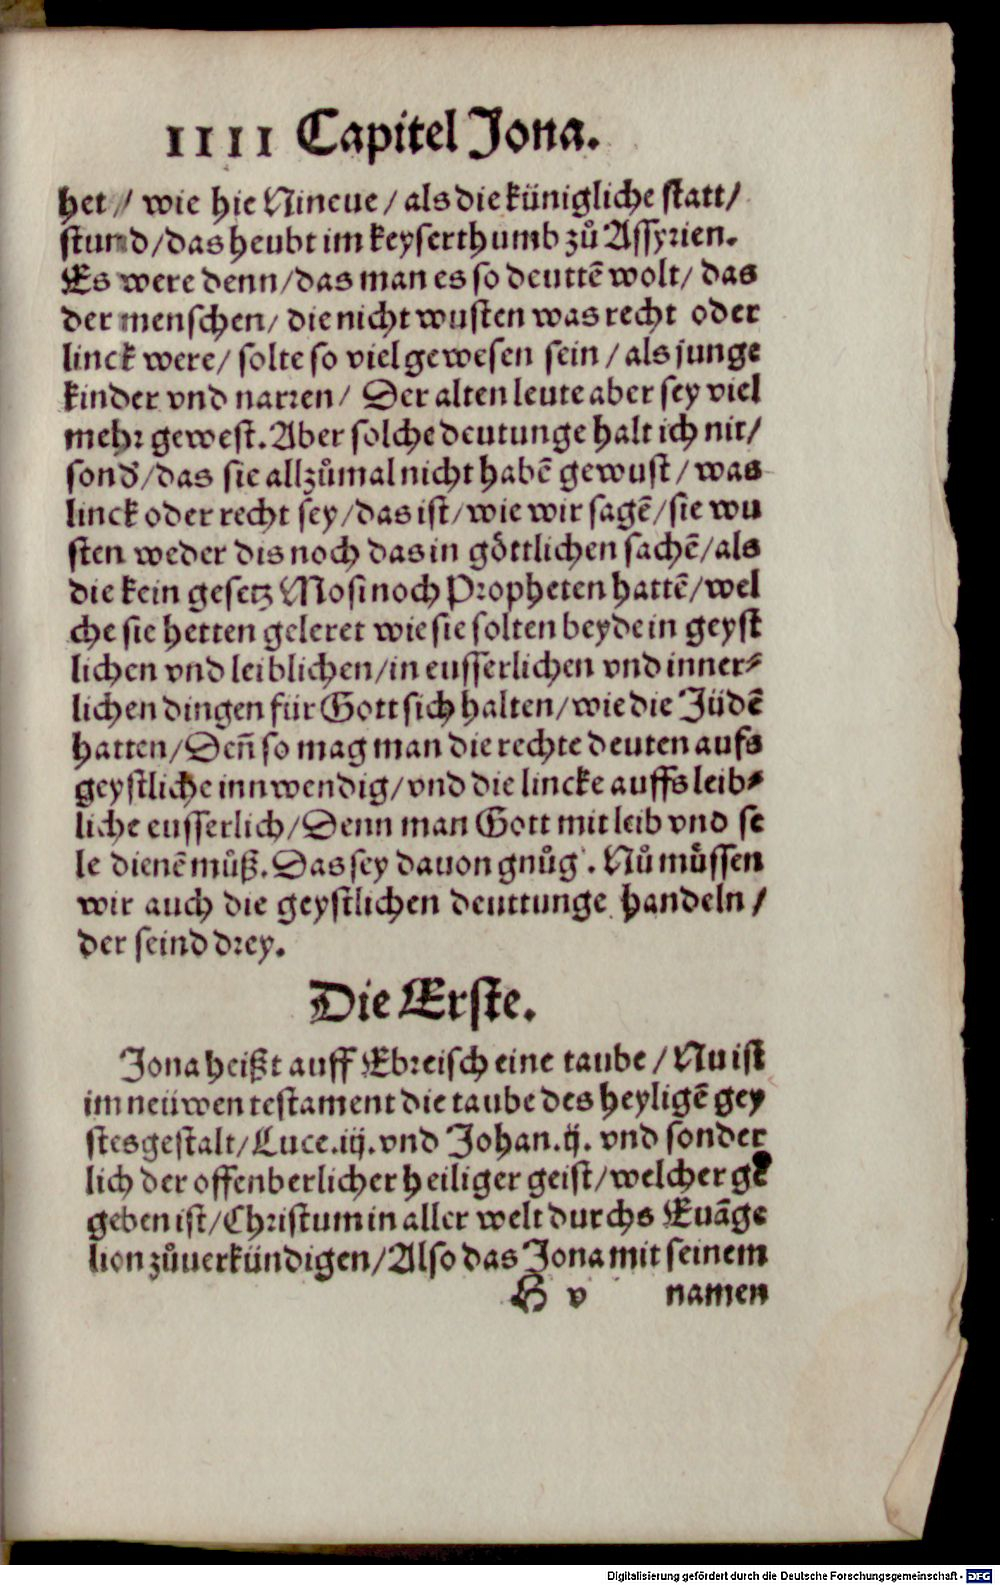 IIII Capitel Jona.
het / wie hie Nineue / als die künigliche statt /
stund / das heubt im keyserthumb zů Assyrien.
Es were denn / das man es so deuttē wolt / das
der menschen / die nicht wusten was recht oder
linck were / solte so viel gewesen sein / als junge
kinder vnd narren / Der alten leute aber sey viel
mehr gewest. Aber solche deutunge halt ich nit /
sond' / das sie allzůmal nicht habē gewust / was
linck oder recht sey / das ist / wie wir sagē / sie wu
sten weder dis noch das in göttlichen sachē / als
die kein gesetz Mosi noch Propheten hattē / wel
che sie hetten geleret wie sie solten beyde in geyst
lichen vnd leiblichen / in eusserlichen vnd inner⸗
lichen dingen für Gott sich halten / wie die Jüdē
hatten / Deñ so mag man die rechte deuten aufs
geystliche innwendig / vnd die lincke auffs leib⸗
liche eusserlich / Denn man Gott mit leib vnd se
le dienē můß. Das sey dauon gnůg . Nů müssen
wir auch die geystlichen deuttunge handeln /
der seind drey.
Die Erste.
Jona heißt auff Ebreisch eine taube / Nu ist
im neüwen testament die taube des heyligē gey
stes gestalt / Luce.iij. vnd Johan.ij. vnd sonder
lich der offenberlicher heiliger geist / welcher ge
geben ist / Christum in aller welt durchs Euāge
lion zůuerkündigen / Also das Jona mit seinem
H v namen
Digitalisierung gefördert durch die Deutsche Forschungsgemeinschaft - DFG